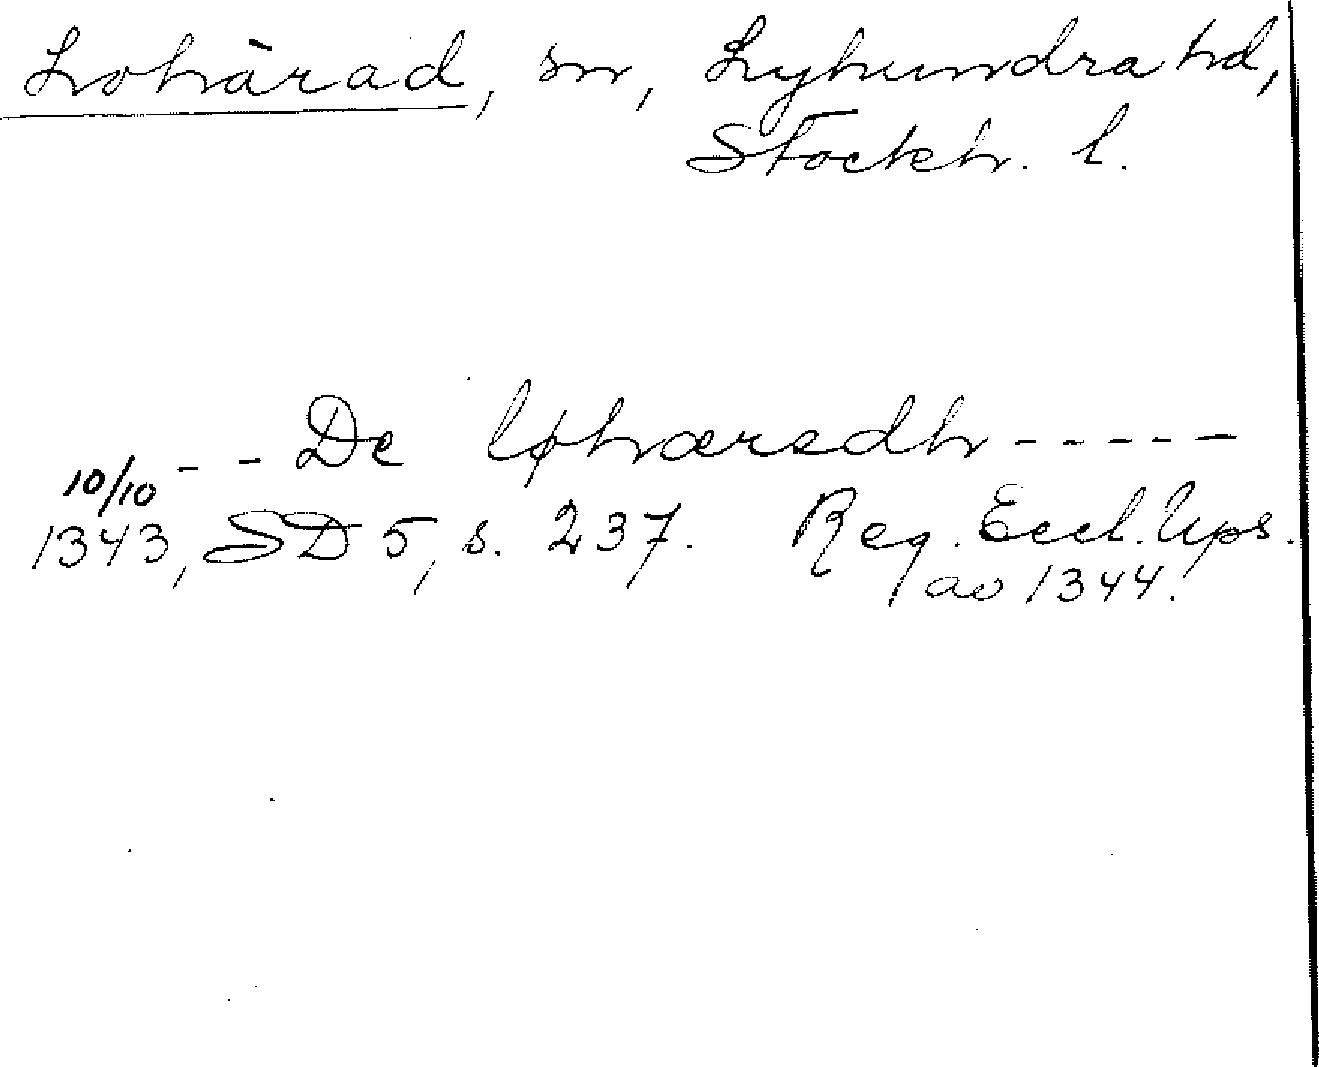 Lohärad, sn, Lyhundra hd,
Stockh. l.
- - De løhærædh - - - - -
10/10
1343, SD 5, s. 237. Reg. Eccl. Ups.
av 1344.